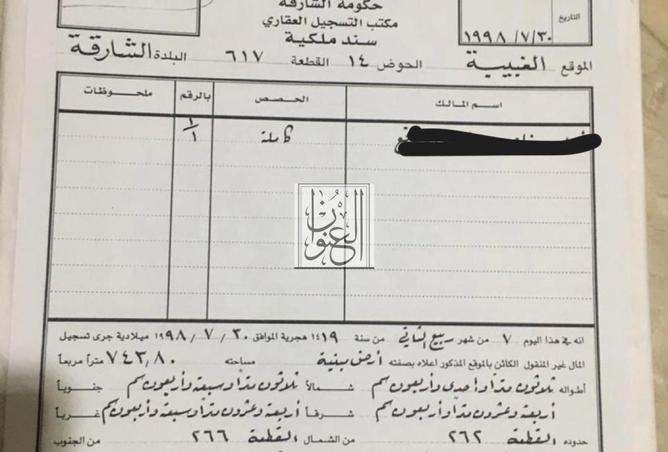 حكومة الشارقة
مكتب التسجيل العقاري
سند ملكية
التاريخ
١٩٩٨/٧/٣٠
الموقع الغبيبة الحوض ١٤ القطعة ٦١٧ البلدة الشارقة
اسم المالك الحصص بالرقم ملحوظات
كاملة ١/١
العنوان
انه في هذا اليوم ٧ من شهر ربيع الثاني من سنة ١٤١٩ هجرية الموافق ١٩٩٨/٧/٣٠ ميلادية جرى تسجيل
المال غير المنقول الكائن بالموقع المذكور اعلاه بصفته أرض مبنية مساحته ٧٤٣,٨٠ متراً مربعاً
اطواله ثلاثون متراً واحدى وأربعون سم شمالاً ثلاثون متراً وسبعة وأربعون سم جنوباً
أربعة وعشرون متراً وأربعون سم شرقاً أربعة وعشرون متراً وسبعة وأربعون سم غرباً
حدوده القطعة ٢٦٢ من الشمال القطعة ٢٦٦ من الجنوب